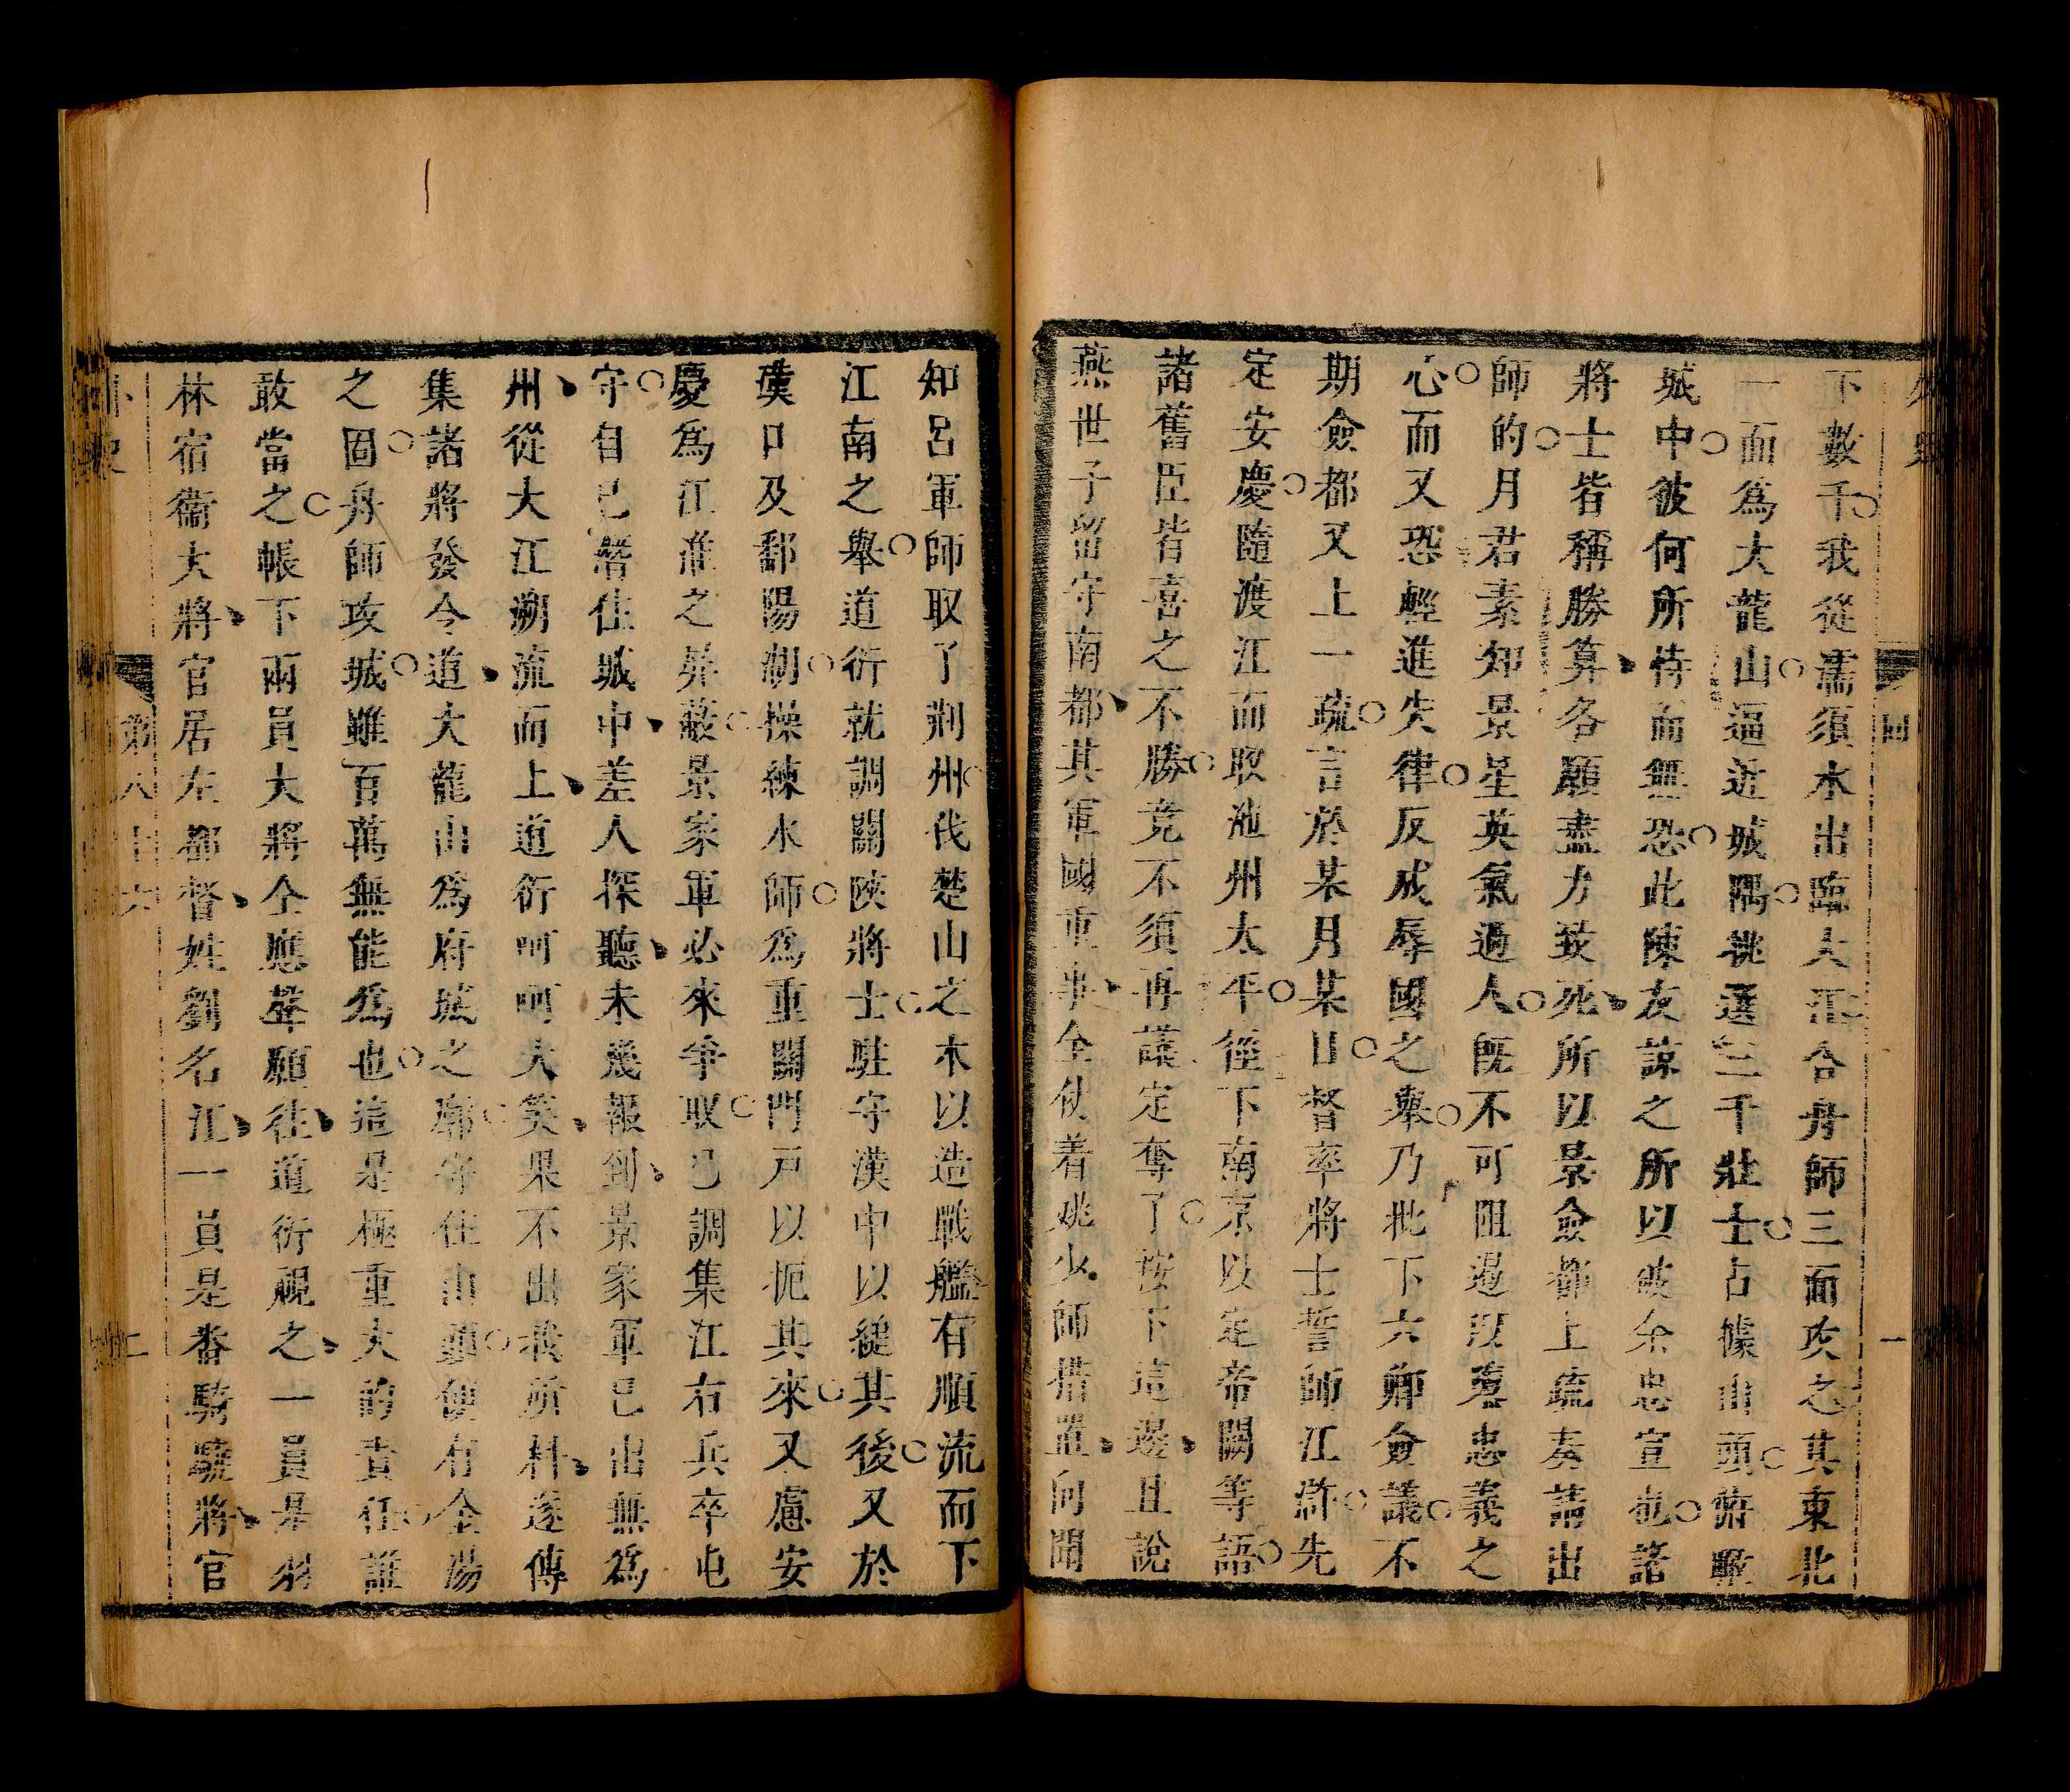 外史
回
一
下數千我從濡須水出臨大江合舟師三面攻之其東北
一面爲大龍山逼近城隅挑選三千壯士占據山頭俯瞰
城中彼何所恃而無恐此陳友諒之所以破余忠宣也諸
將士皆稱勝算各願盡力致死所以景僉都上疏奏請出
師的月君素知景星英氣過人既不可阻遏又墮忠義之
心而又恐輕進失律反成辱國之舉乃批下六卿僉議不
期僉都又上一疏言於某月某日督率將士誓師江滸先
定安慶隨渡江而取池州太平徑下南京以定帝闕等語
諸舊臣皆喜之不勝竟不須再議定奪了按下這邊且說
燕世子留守南都其軍國重事全仗着姚少師措置向聞
知呂軍師取了荆州伐楚山之木以造戰艦有順流而下
江南之舉道衍就調關陝將士駐守漢中以縋其後又於
口及鄱陽湖操練水師爲重關門戸以扼其來又慮安
慶爲江淮之屏蔽景家軍必來爭取已調集江右兵卒屯
守自己潛住城中差人探聽未幾報到景家軍已出無爲
州從大江溯流而上道衍呵呵大笑果不出我所料遂傳
集諸將發令道大龍山爲府城之鄰守住山頭便有金湯
之固舟師攻城雖百萬無能爲也這是極重大的責任誰
敢當之帳下兩員大將全應聲願往道衍視之一員是羽
林宿衞大將官居左都督姓劉名江一員是番騎驍將官
外史
第八十六
二